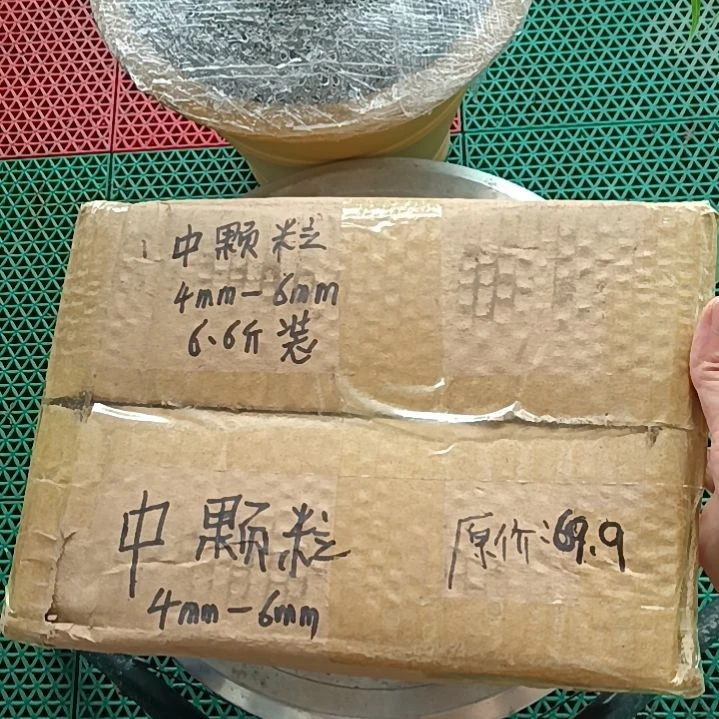 中颗粒
4mm-6mm
6.6斤装
中颗粒
4mm-6mm
原价:69.9